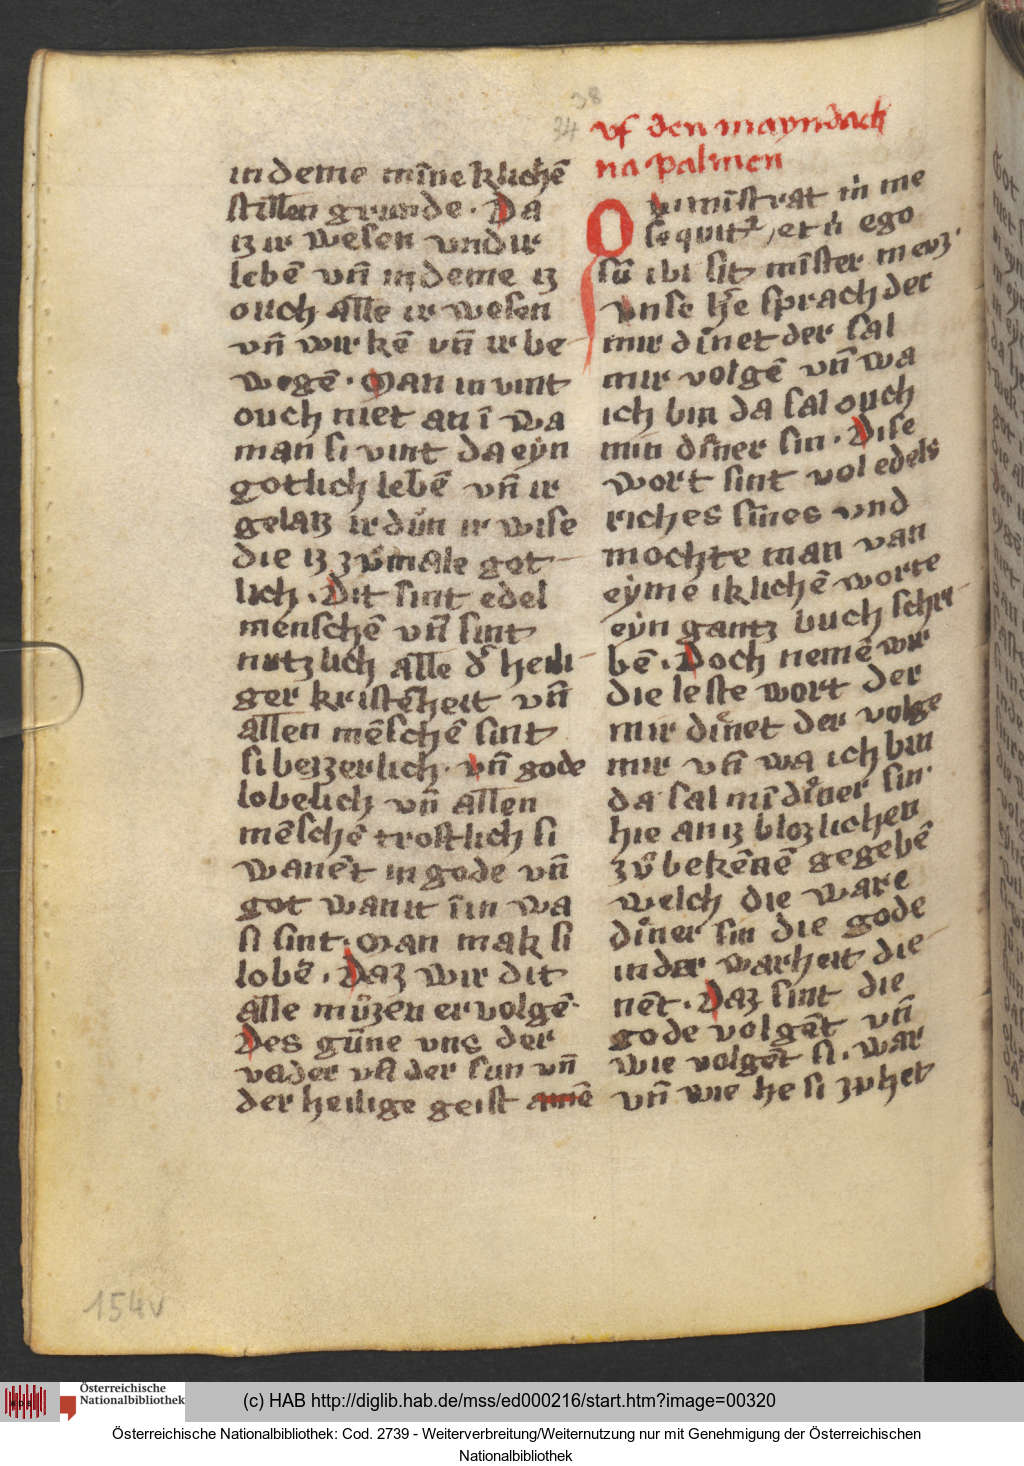 38
34
in deme mīneklichē
stillen grunde · Da
iz ir wesen vnd ir
lebē vn̄ in deme iz
ouch alle ir wesen
vn̄ wirkē vn̄ ir be
wegē · Man in vint
ouch niet an ī wa
man si vint da eyn
gotlich lebē vn̄ ir
gelaiz ir důn ir wise
die iz zůmale got
lich · Dit sint edel
menschē vn̄ sint
nutzlich alle d' heili
ger kristēheit vn̄
allen mēschē sint
si beizerlich · vn̄ gode
lobelich vn̄ allen
mēschē trostlich si
wanēt in gode vn̄
got wanit īin wa
si sint · Man mak si
lobē · Daz wir dit
alle můzen ervolgē·
Des gūne vns der
vader vn̄ der sun vn̄
der heilige geist amē
vf den mayndach
na palmen
Qui ministrat m̄ me
sequit², et ū ego
sū ibi sit mīster meuz·
vnse h̄e sprach der
mir dinet der sal
mir volgē vn̄ wa
ich bin da sal ouch
min diner sin · Dise
wort sint vol edels
riches sīnes vnd
mochte man van
eyme iklichē worte
eyn gantz buch schri
bē · Doch nemē wir
die leste wort der
mir dinet der volge
mir vn̄ wa ich bin
da sal mī diner sin·
hie an iz blozlichen
zů bekēnē gegebē
welch die ware
diner sin die gode
in der warheit die
nēt · Daz sint die
gode volgēt vn̄
wie volgēt si · war
vn̄ wie he si zuhet
154v
Österreichische
Nationalbibliothek
(c) HAB http://diglib.hab.de/mss/ed000216/start.htm?image=00320
Österreichische Nationalbibliothek: Cod. 2739 - Weiterverbreitung/Weiternutzung nur mit Genehmigung der Österreichischen
Nationalbibliothek